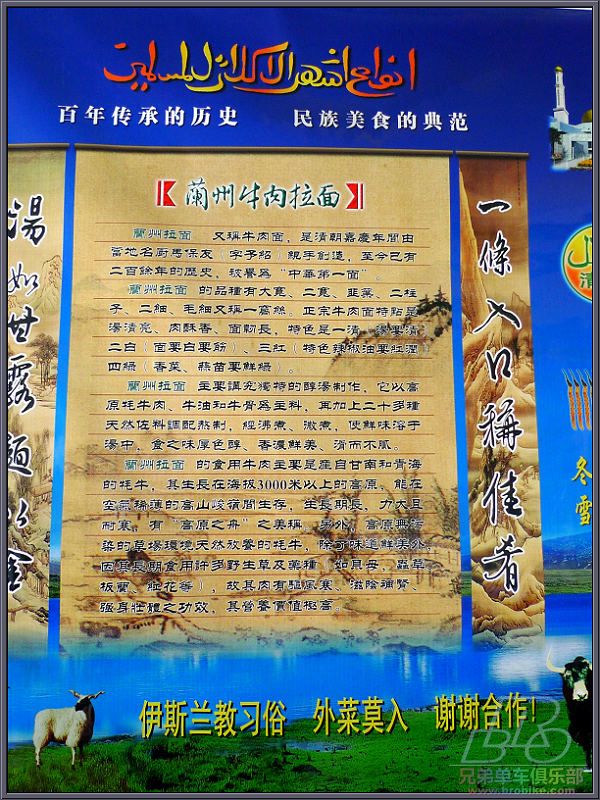 百年传承的历史　　民族美食的典范
【蘭州牛肉拉面】
蘭州拉面　又稱牛肉面，是清朝嘉慶年間由
當地名厨馬保友（字子紹）親手創造，至今已有
二百餘年的歷史，被譽爲“中華第一面”。
蘭州拉面 的品種有大寬、二寬、韮菜、二柱
子、二細、毛細又稱一窩絲。正宗牛肉面特點是
湯清亮、肉酥香、面韌長，特色是一清（湯要清）
二白（面要白要筋）、三紅（特色辣椒油要紅潤）
四綠（香菜、蒜苗要鮮綠）。
蘭州拉面 主要講究獨特的醇湯制作，它以高
原牦牛肉、牛油和牛骨爲主料，再加上二十多種
天然佐料調配熬制，經沸煮、微煮，使鮮味溶于
湯中，食之味厚色醇、香濃鮮美、滑而不膩。
蘭州拉面 的食用牛肉主要是産自甘南和青海
的牦牛，其生長在海拔3000米以上的高原，能在
空氣稀薄的高山峻嶺間生存，生長期長，力大且
耐寒，有“高原之舟”之美稱，另外，高原無污
染的草場環境天然放養的牦牛，除了味道鮮美外，
因其長期食用許多野生草及藥種（如貝母，蟲草，
板蘭、粒花等），故其肉有驅風寒、滋陰補腎、
强身壯體之功效，其營養價值極高。
湯如甘露麵似金
一條入口稱佳肴
清
冬
雪
伊斯兰教习俗　外菜莫入　谢谢合作！
BRO
兄弟单车俱乐部
www.brobike.com